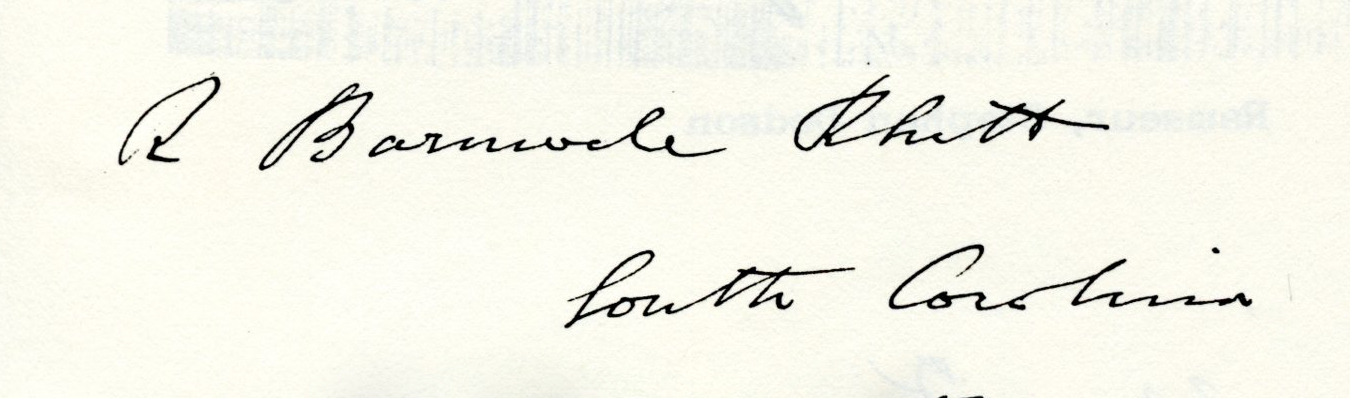 R Barnwell Rhett
South Carolina